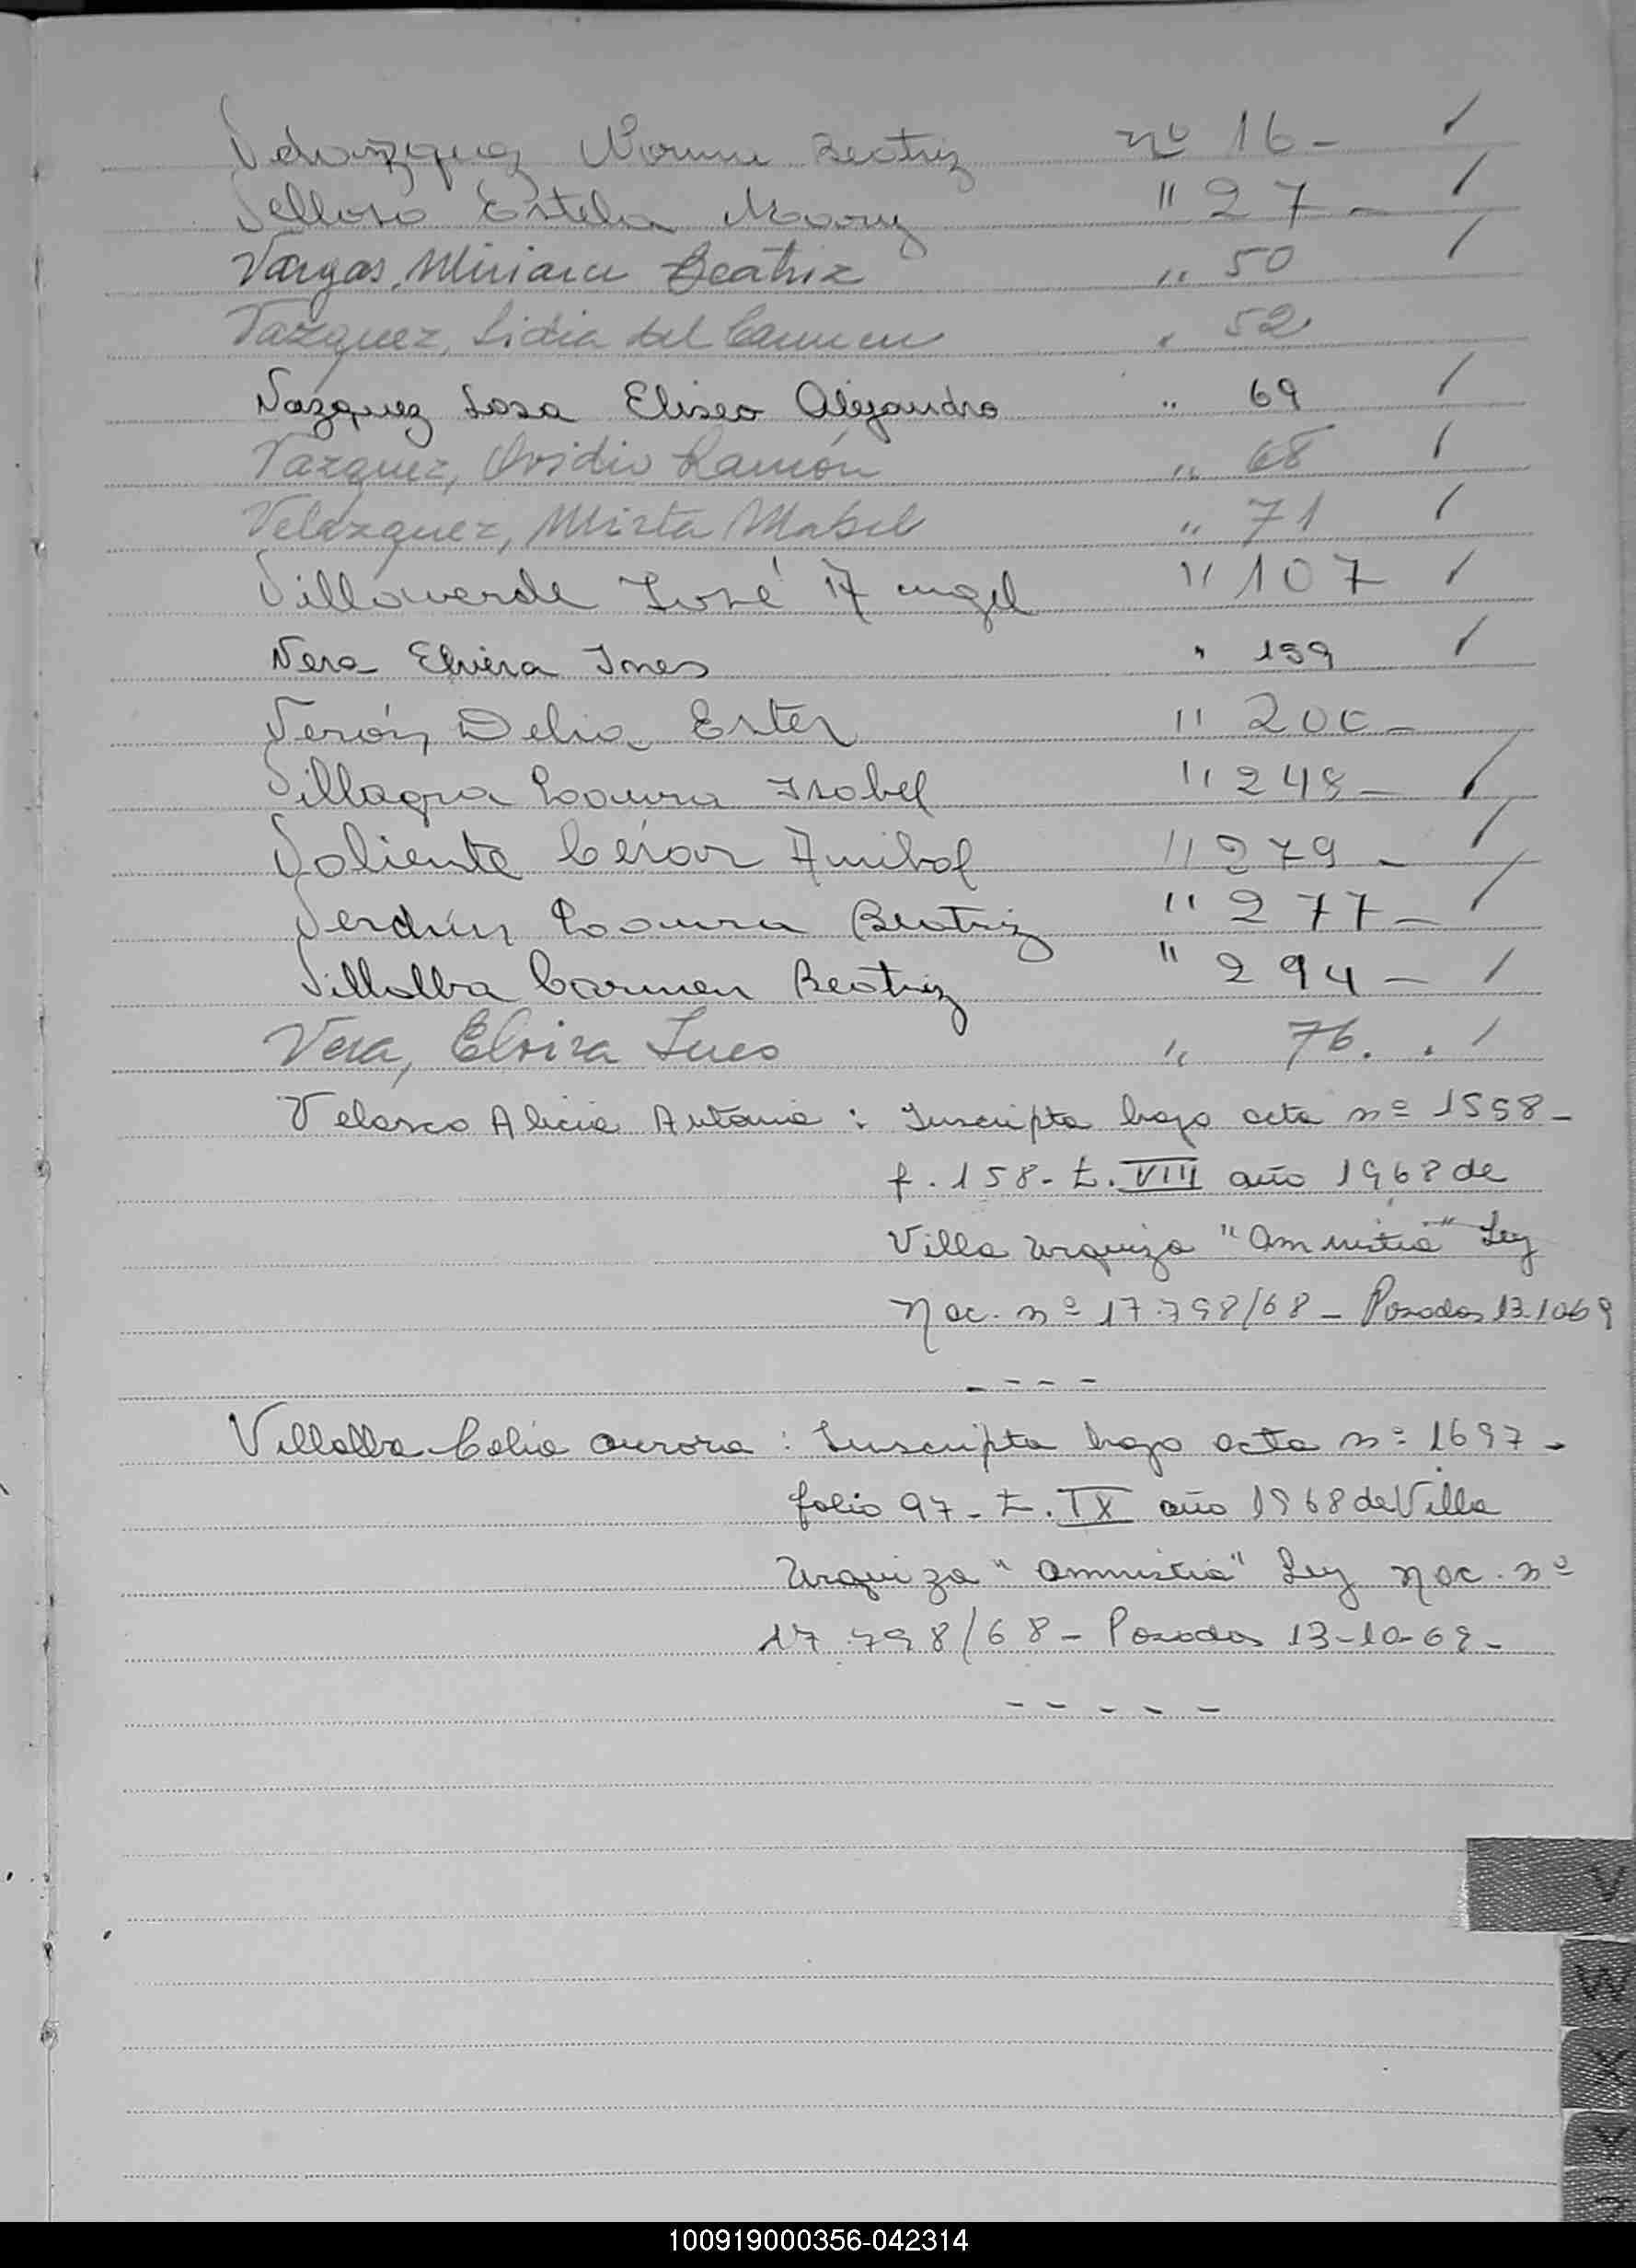 Velazquez Norma Beatriz nº 16 -
Velloso Estela Mary " 27 -
Vargas, Miriam Beatriz " 50
Vazquez, Lidia del Carmen " 52
Vazquez Sosa Eliseo Alejandro " 69
Vazquez, Ovidio Ramón " 68
Velázquez, Mirta Mabel " 71
Villaverde José Angel " 107
Vera Elvira Ines " 159
Verón, Delia Ester " 200 -
Villagra Laura Isabel " 248 -
Valiente César Anibal " 279 -
Verdún Laura Beatriz " 277 -
Villalba Carmen Beatriz " 294 -
Vera, Elvira Ines " 76.
Velasco Alicia Antonia : Inscripta bajo acta nº 1558 -
f. 158 - t. VIII año 1968 de
Villa Urquiza "Amnistia" Ley
Nac. nº 17.798/68 - Posadas 13-10-69
- - - -
Villalba Celia Aurora : Inscripta bajo acta nº 1697 -
folio 97 - t. IX año 1968 de Villa
Urquiza "Amnistia" Ley Nac. nº
17.798/68 - Posadas 13-10-69 -
- - - - -
V
W
X
Y
100919000356-042314